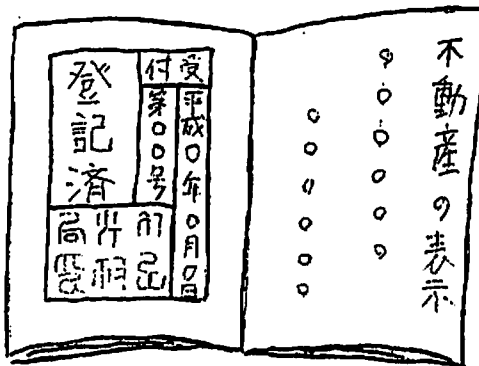 不動産の表示
○○○○○○
○○○○○○
受付
平成○年○月○日
第○○号
登記済